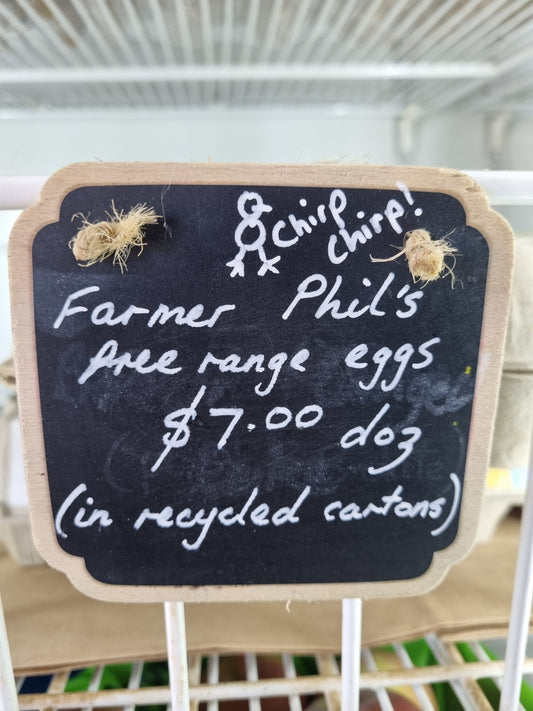 Chirp
Chirp!
Farmer Phil's
free range eggs
$7.00 doz
(in recycled cartons)